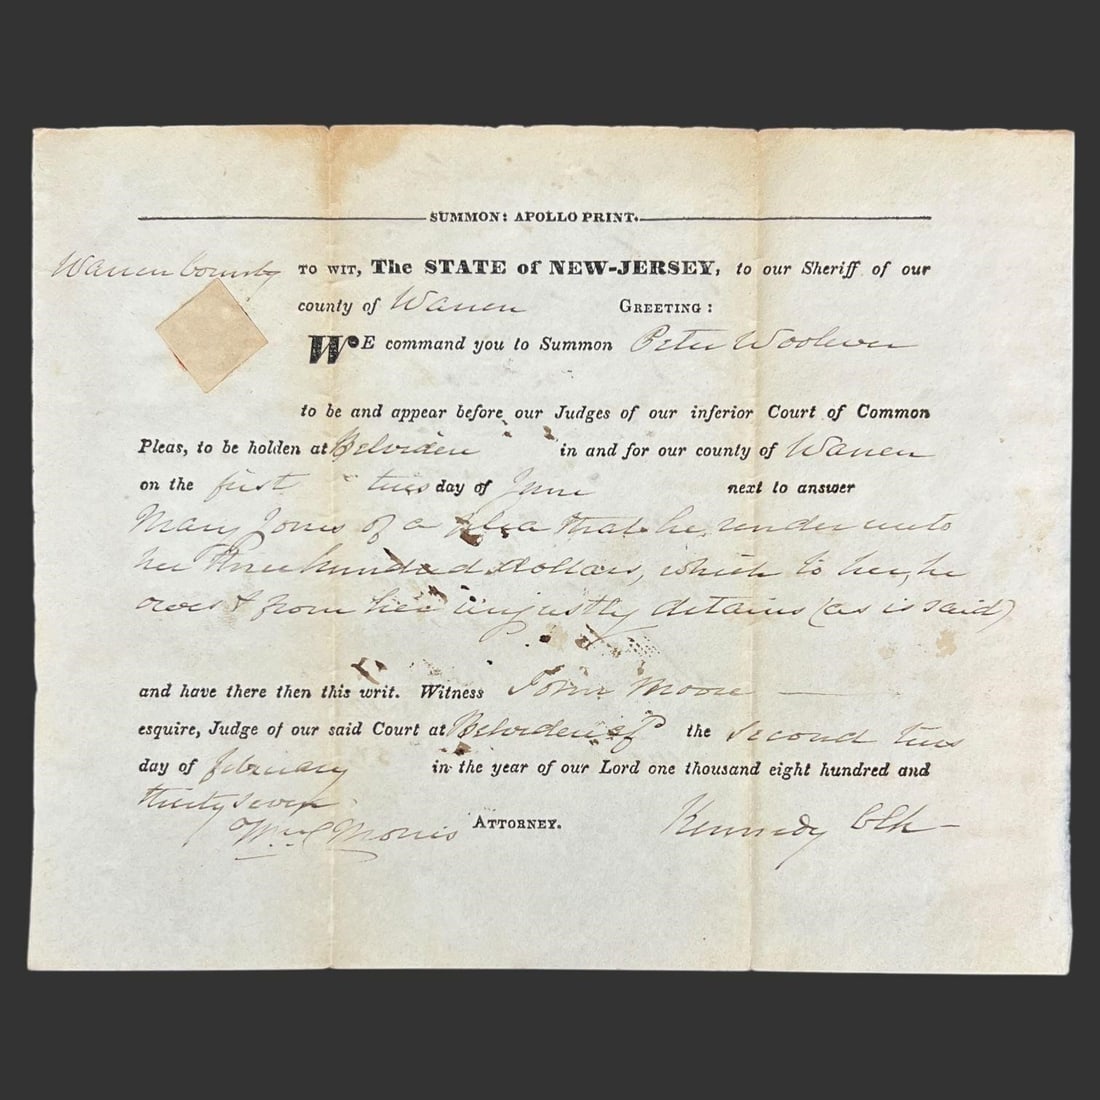 SUMMON: APOLLO PRINT.
Warren County TO WIT, The STATE of NEW-JERSEY, to our Sheriff of our
county of Warren GREETING:
WE command you to Summon Peter Woolever
to be and appear before our Judges of our inferior Court of Common
Pleas, to be holden at Belvidere in and for our county of Warren
on the first tuesday of June next to answer
Mary Jones of a plea that he render unto
her Three hundred dollars, which to her, he
owes & from her unjustly detains (as is said)
and have there then this writ. Witness John Moore
esquire, Judge of our said Court at Belvidere the second tues
day of february in the year of our Lord one thousand eight hundred and
thirty seven
Morris ATTORNEY. Kennedy Clk